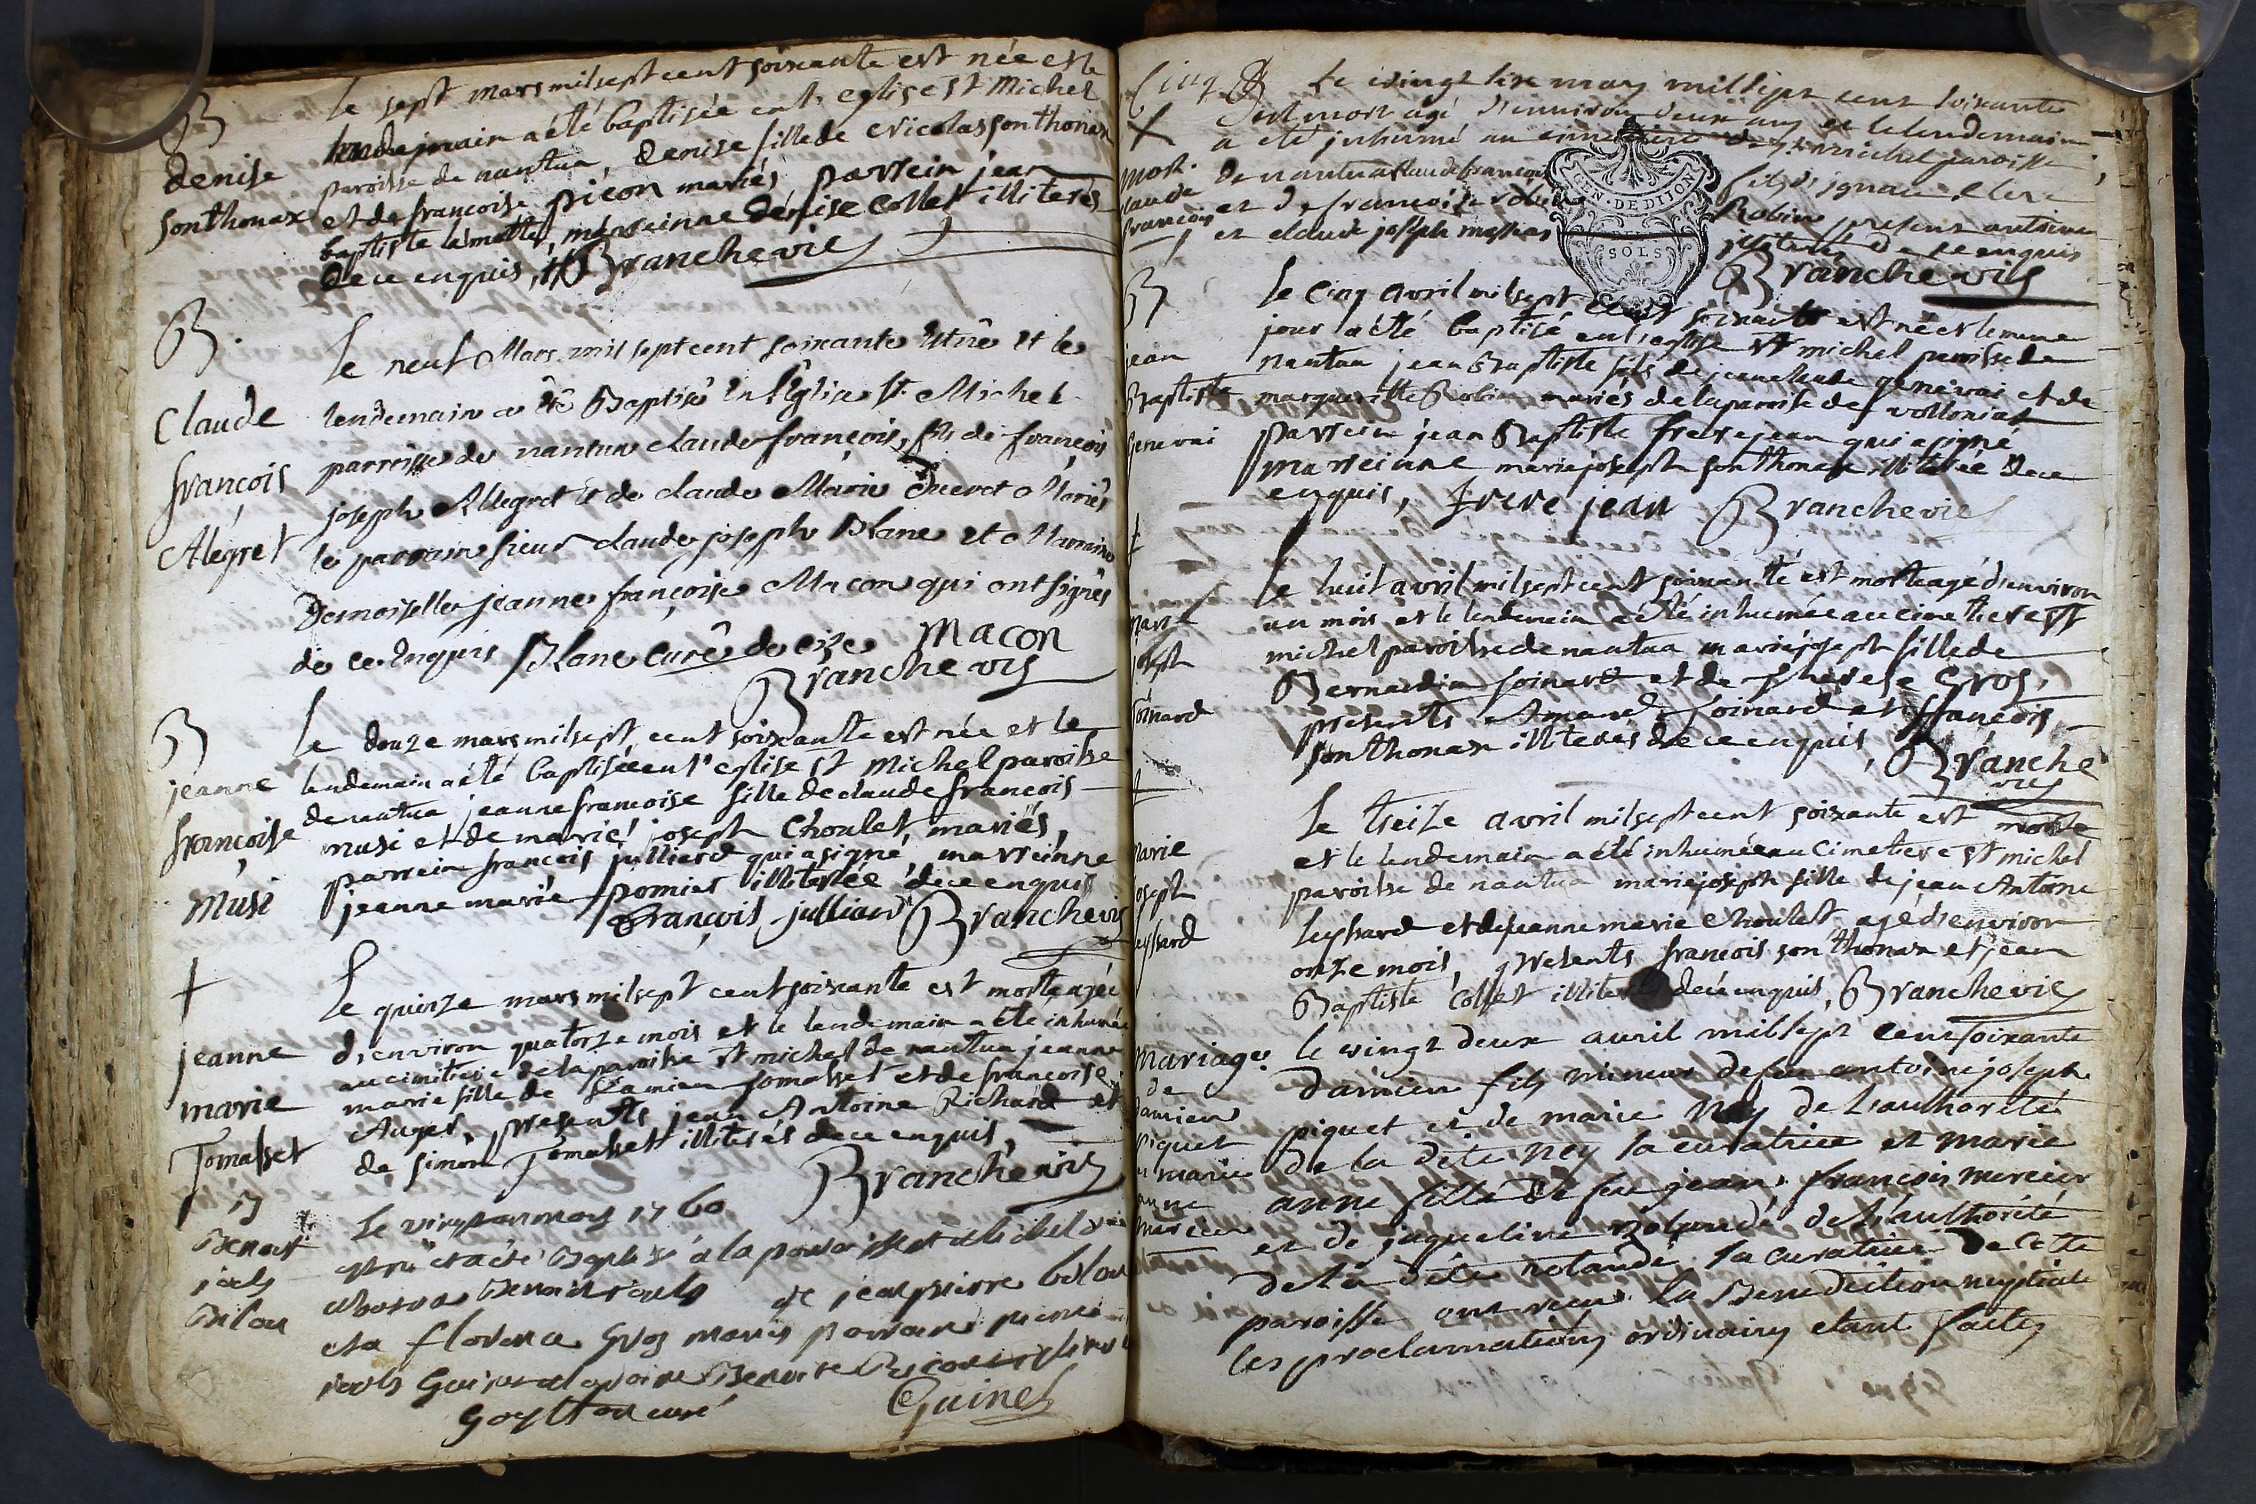 B
denise
Sonthonax
le sept mars mil sept cent soixante est née et le
lendemain a été baptisée en l'eglise St Michel
paroisse de nantua, denise fille de Nicolas Sonthonax
et de françoise picon mariés parrein jean
baptiste lémotte, marreinne dénise collet illiterés
de ce enquis, Branchevie
B
Claude
françois
Alegret
le neuf Mars mil sept cent soixante Est né et le
lendemain a été Baptisé En l'Eglise St. Michel
parroisse de nantua claude françois, fils de françois
joseph Allegret et de claude Marie Mariés
le parrain sieur claude joseph Blanc et Marraine
Demoiselle jeanne françoise Macon qui ont signés
de ce Enquis Blanc Curé de cize Macon
Branchevis
B
jeanne
françoise
Musi
le douze mars mil sept cent soixante est née et le
lendemain a été baptisée en l'eglise St Michel paroisse
de nantua jeanne francoise fille de claude francois
musi et de marie joseph choulet, mariés,
parrein francois julliard qui a signé, marreinne
jeanne marie pomier illiterée de ce enquis
françois julliard Branchevis
†
jeanne
marie
Tomasset
le quinze mars mil sept cent soixante est morte agée
d'environ quatorze mois et le lendemain a été inhumée
au cimitiere de la paroisse St michel de nantua jeanne
marie fille de Damien Tomasset et de francoise
Auger, presents jean Antoine Richard et
de simon Tomasset illiterés de ce enquis,
Branchevis
B
Benoit
joels
Bilon
le vingt mars 1760
est né et a été Baptisé a la paroisse St Michel
Benoit de jean pierre bilon
et a florence gros mariés parrain pierre
Benoite
curé Guinet
Cinq
†
mort
claude
françois
le vingt six mars mil sept cent soixante
est mort agé d'environ deux ans et le lendemain
a été inhumé au cimetiere de St michel paroisse
de nantua claude francois fils d'ignace
et de françoise robin Robin presens antoine
et claude joseph illiterés de ce enquis
GEN. DE DIJON
SOLS
Branchevis
B
jean
Baptiste
genevai
le cinq avril mil sept cent soixante est né et le meme
jour a été baptisé en l'eglise St michel paroisse de
nantua jean Baptiste fils de jean claude genevai et de
marguerite Robin mariés de la paroisse de vollonias
parrein jean Baptiste frere jean qui a signé
marreinne marie joseph sonthonax illiterée de ce
enquis, frere jean Branchevie
†
marie
joseph
soinard
le huit avril mil sept cent soixante est morte agé d'environ
un mois et le lendemain a été inhumée au cimetiere St
michel paroisse de nantua marie joseph fille de
Bernardin soinard et de therese Gros,
presents Amard soinard et francois
sonthonax illiterés de ce enquis, Branche
vis
†
marie
joseph
leyssard
le treize avril mil sept cent soixante est morte
et le lendemain a été inhumée au Cimetiere St michel
paroisse de nantua marie joseph fille de jean Antoine
leyssard et de jeanne marie choulet agé d'environ
onze mois, presents francois sonthonax et jean
Baptiste Collet illiterés de ce enquis, Branchevis
Mariage
de
damien
piquet
et marie
anne
mercier
le vingt deux avril mil sept cent soixante
damien fils mineur de feu antoine joseph
piquet et de marie Ney de l'authorité
de la dite Ney sa curatrice et marie
anne fille de feu jean françois mercier
et de jaqueline de l'authorité
de la dite sa curatrice de cette
paroisse ont reçu la Benediction nuptiale
les proclamations ordinaires etant faites